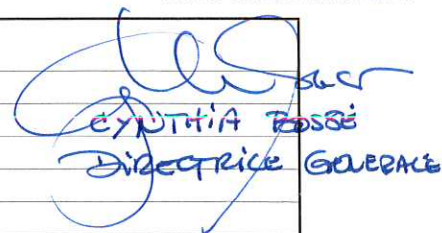 CYNTHIA BOSSÉ
DIRECTRICE GÉNÉRALE